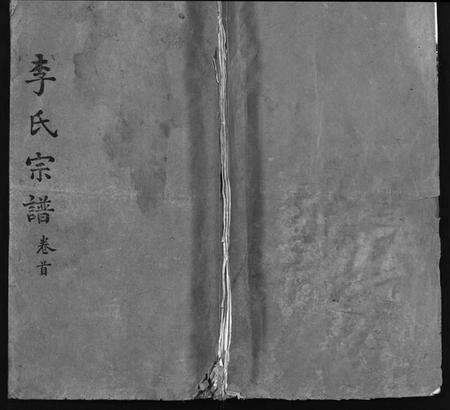 李氏宗譜卷首